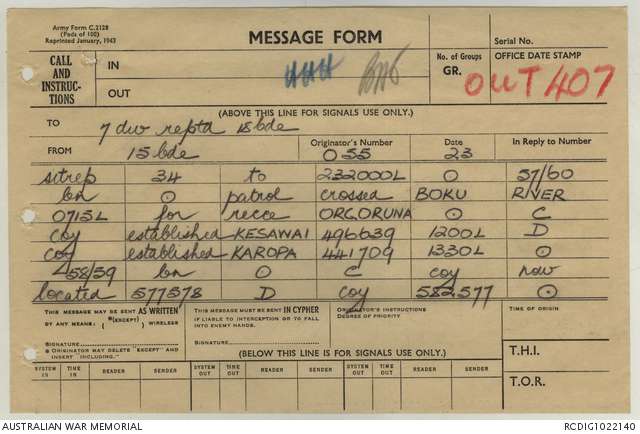 Army Form C.2128
(Pads of 100)
Reprinted January, 1943
MESSAGE FORM
Serial No.
CALL AND INSTRUC-TIONS
IN
OUT
No. of Groups
GR.
OFFICE DATE STAMP
OUT 407
(ABOVE THIS LINE FOR SIGNALS USE ONLY.)
TO 7 div reptd 18 bde
FROM 15 bde
Originator's Number 055
Date 23
In Reply to Number
sitrep 34 to 232000L ⊙ 57/60
bn ⊙ patrol crossed BOKU RIVER
0715L for recce ORGORUNA ⊙ C
coy established KESAWAI 496639 1200L D
coy established KAROPA 441709 1330L ⊙
58/59 bn ⊙ C coy now
located 577578 D coy 582577 ⊙
THIS MESSAGE MAY BE SENT AS WRITTEN
BY ANY MEANS: *(EXCEPT) WIRELESS
SIGNATURE
* ORIGINATOR MAY DELETE "EXCEPT" AND INSERT "INCLUDING."
THIS MESSAGE MUST BE SENT IN CYPHER
IF LIABLE TO INTERCEPTION OR TO FALL
INTO ENEMY HANDS.
SIGNATURE
ORIGINATOR'S INSTRUCTIONS
DEGREE OF PRIORITY
TIME OF ORIGIN
(BELOW THIS LINE IS FOR SIGNALS USE ONLY.)
T.H.I.
T.O.R.
SYSTEM IN TIME IN READER SENDER SYSTEM OUT TIME OUT READER SENDER SYSTEM OUT TIME OUT READER SENDER
AUSTRALIAN WAR MEMORIAL
RCDIG1022140